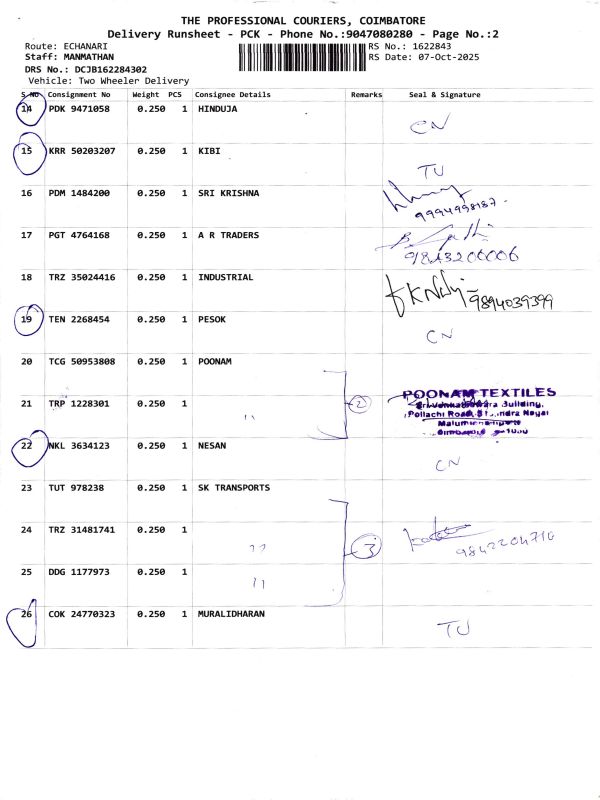 THE PROFESSIONAL COURIERS, COIMBATORE
Delivery Runsheet - PCK - Phone No.:9047080280 - Page No.:2
Route: ECHANARI RS No.: 1622843
Staff: MANMATHAN RS Date: 07-Oct-2025
DRS No.: DCJB162284302
Vehicle: Two Wheeler Delivery
S No Consignment No Weight PCS Consignee Details Remarks Seal & Signature
14 PDK 9471058 0.250 1 HINDUJA
CN
15 KRR 50203207 0.250 1 KIBI
TU
16 PDM 1484200 0.250 1 SRI KRISHNA
9994998187
17 PGT 4764168 0.250 1 A R TRADERS
9843200006
18 TRZ 35024416 0.250 1 INDUSTRIAL
9894039399
19 TEN 2268454 0.250 1 PESOK
CN
20 TCG 50953808 0.250 1 POONAM
21 TRP 1228301 0.250 1 " 2 POONAM TEXTILES
Building,
Pollachi Road,
22 NKL 3634123 0.250 1 NESAN
CN
23 TUT 978238 0.250 1 SK TRANSPORTS
24 TRZ 31481741 0.250 1 " 3
9842204710
25 DDG 1177973 0.250 1 "
26 COK 24770323 0.250 1 MURALIDHARAN
TU